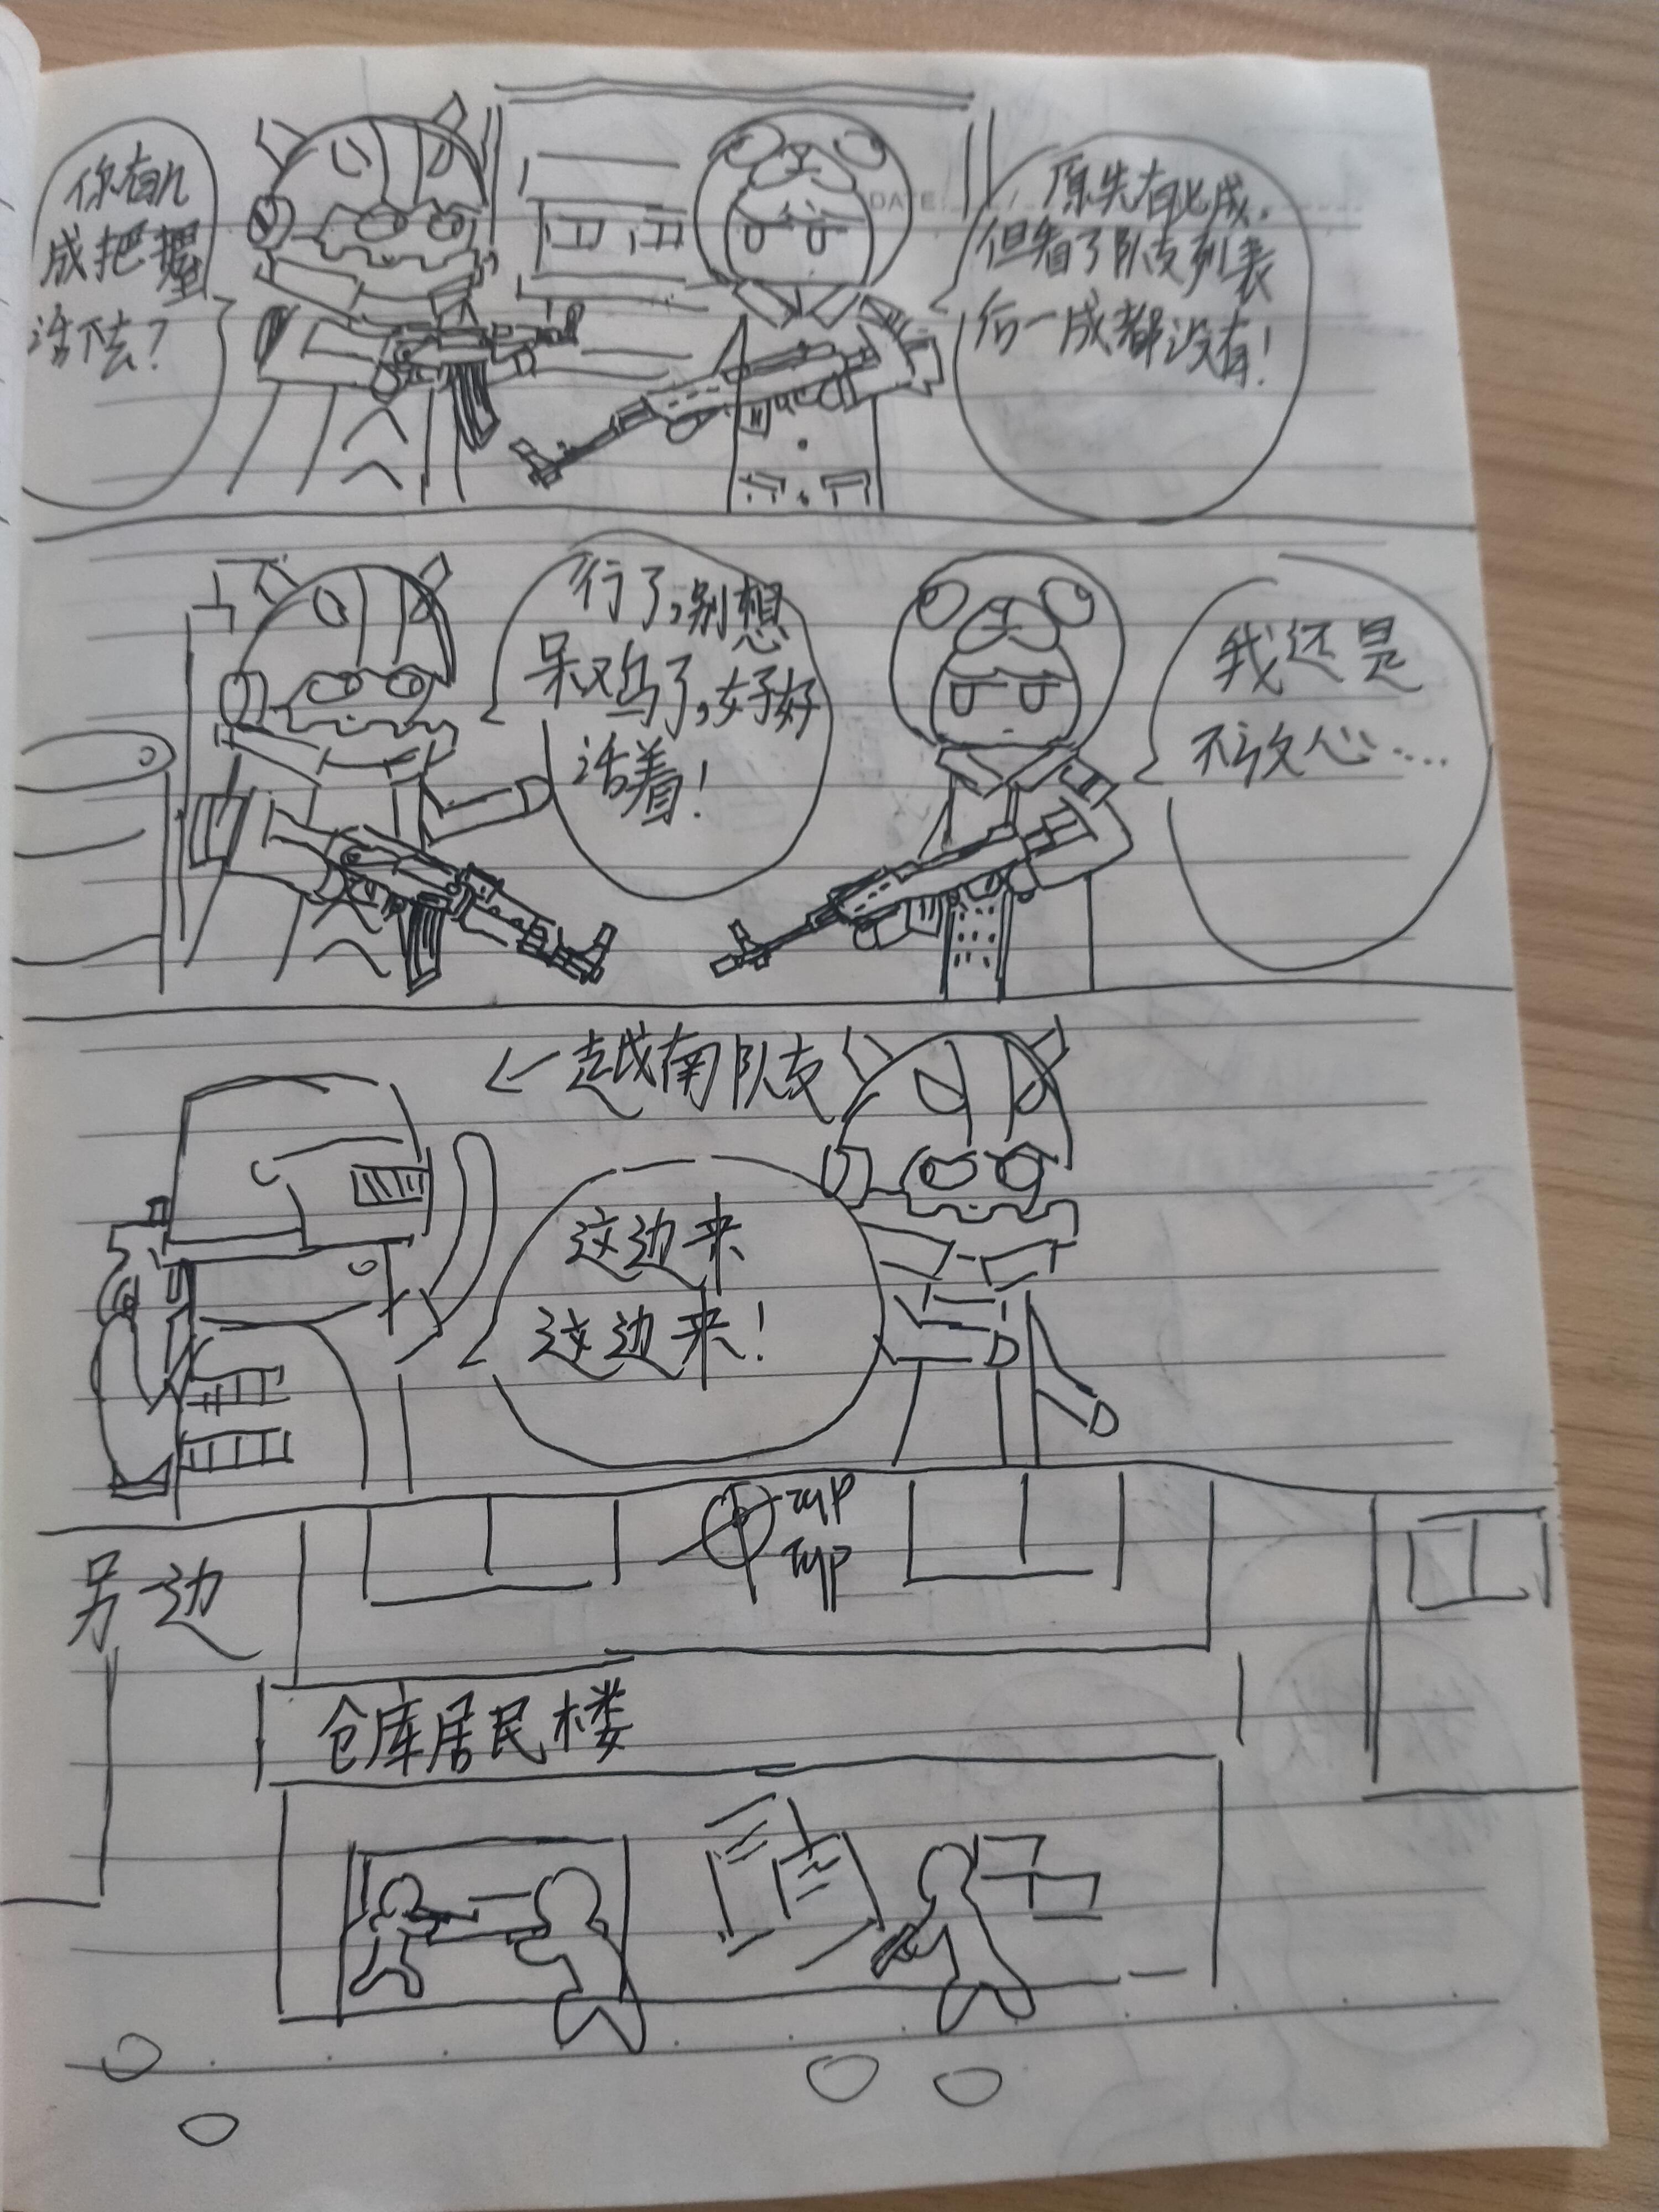 你有几
成把握
活下去？
DATE
原先有七成，
但看了队友列表
后一成都没有！
行了，别想
呆鸡了，好好
活着！
我还是
不放心……
←越南队友
这边来
这边来！
另边
仓库居民楼